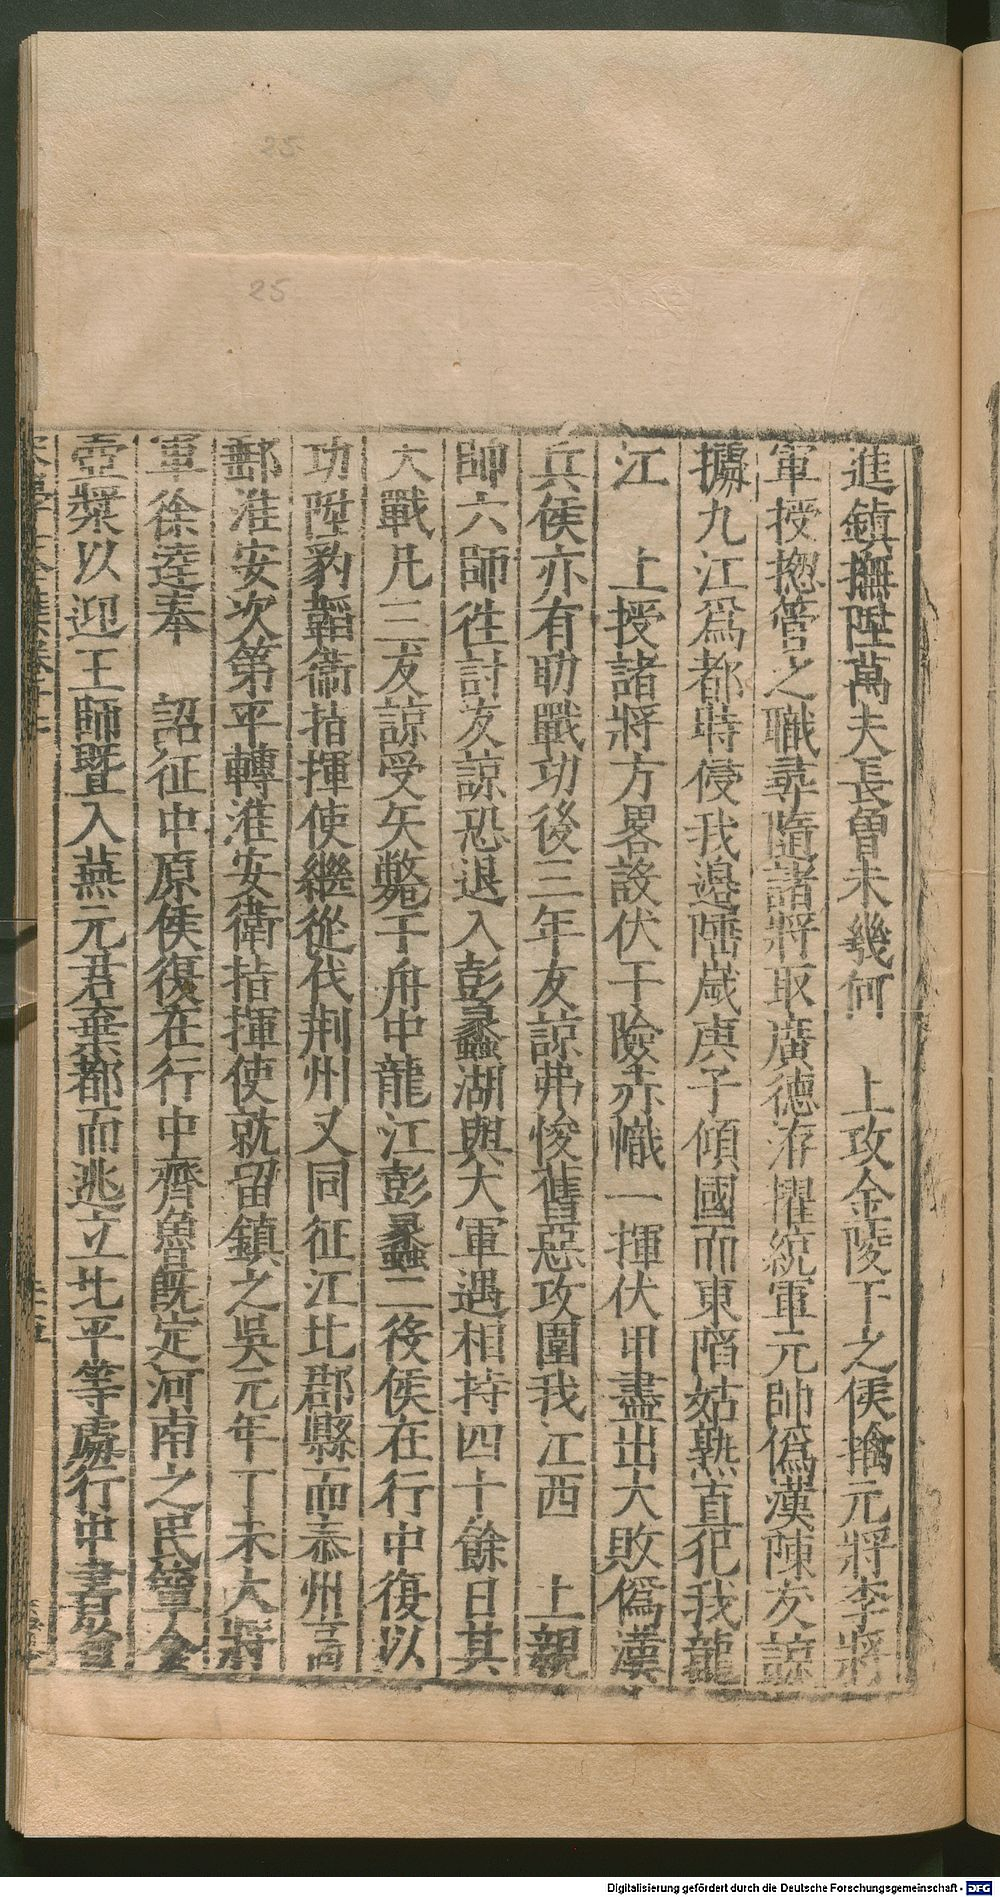 25
25
進鎮撫陞萬夫長曾未幾何　上攻金陵下之侯擒元將李將
軍授揔管之職尋隨諸將取廣德洊擢統軍元帥僞漢陳友諒
據九江爲都時侵我邊陲歲庚子傾國而東陷姑熟直犯我龍
江　上授諸將方畧設伏于險赤幟一揮伏甲盡出大敗僞漢
兵侯亦有助戰功後三年友諒弗悛舊惡攻圍我江西　上親
帥六師徃討友諒恐退入彭蠡湖與大軍遇相持四十餘日其
大戰凡三友諒受矢斃于舟中龍江彭蠡二役侯在行中復以
功陞豹韜衞指揮使繼從伐荆州又同征江北郡縣而泰州高
郵淮安次第平轉淮安衛指揮使就留鎮之吳元年丁未大將
軍徐逹奉　詔征中原侯復在行中齊魯既定河南之民簞食
壺漿以迎王師暨入燕元君棄都而逃立北平等處行中書省